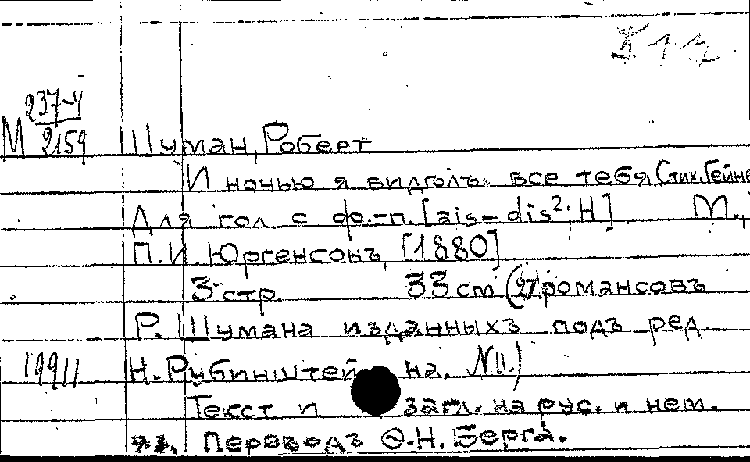 М 237-V
2159
Шуман, Роберт
И ночью я видѣлъ все тебя (Стих. Гейне
Для гол с ф.-п. [ais-dis²· H] М.,
П.И. Юргенсонъ, [1880]
3 стр. 33 cm романсовъ
Р. Шумана изданныхъ подъ ред.
19911 Н. Рубинштейна,
Текст и загл. на рус. и нем.
яз. Переводъ Ѳ.Н. Берга.